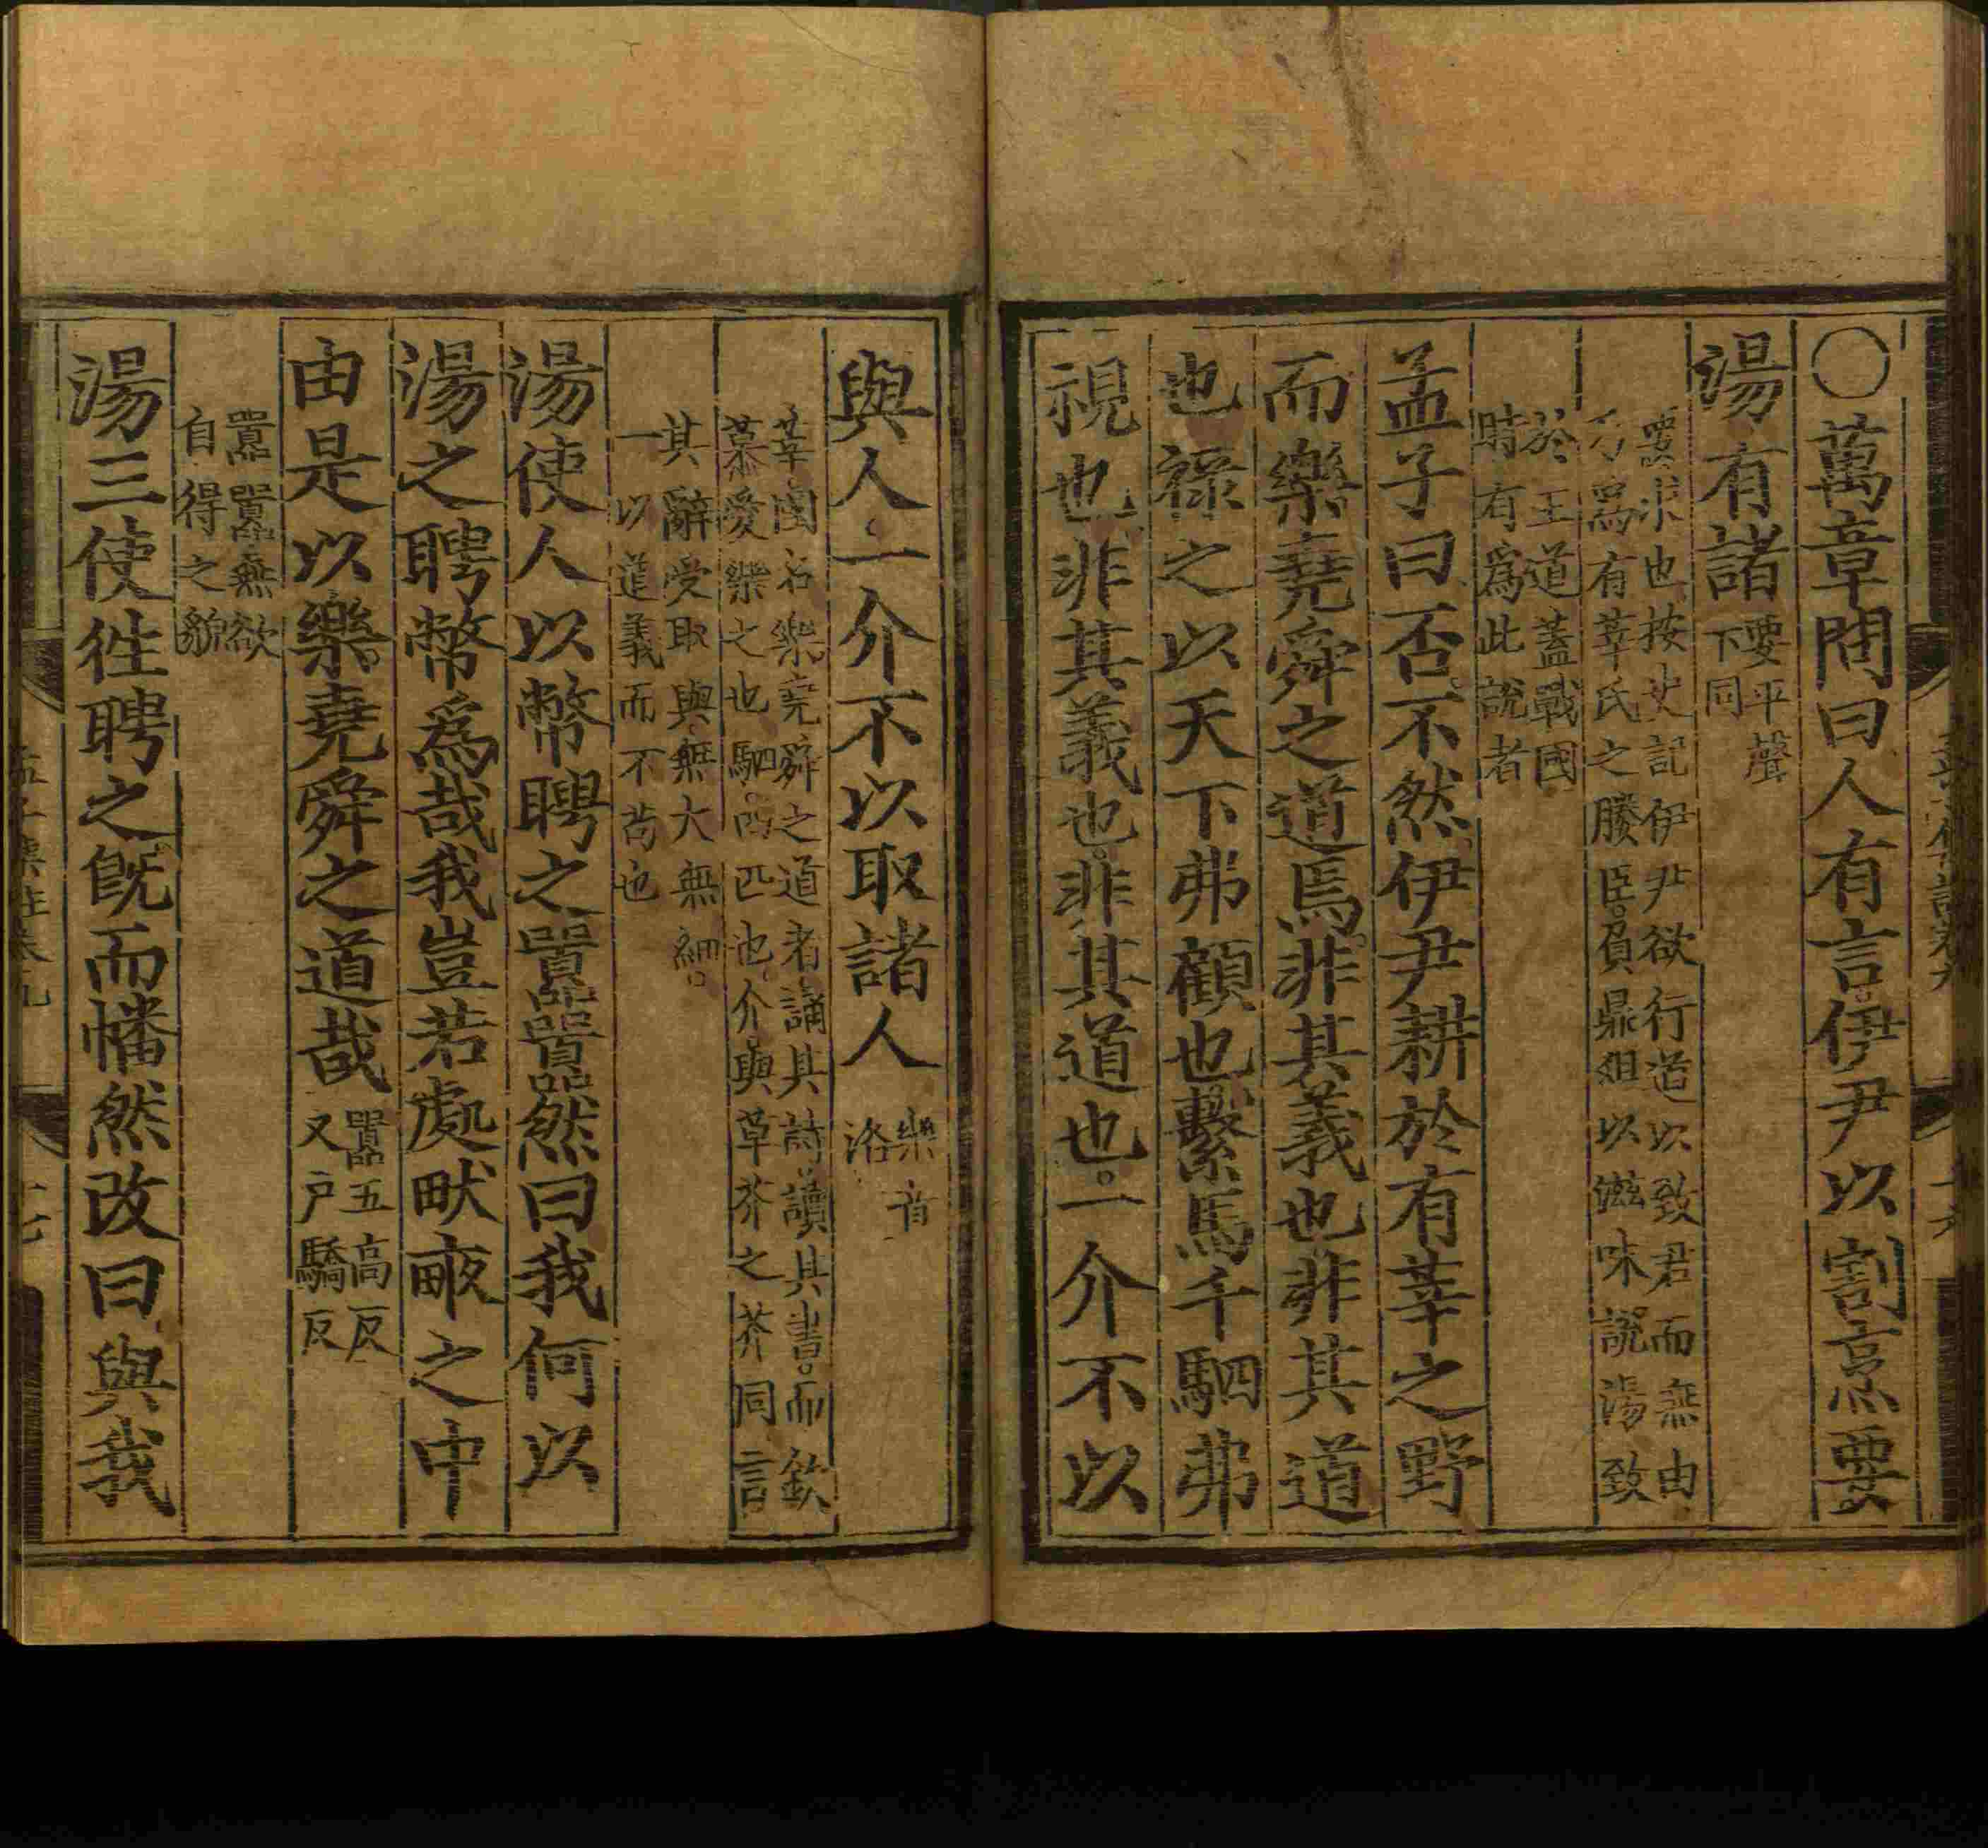 ○萬章問曰人有言伊尹以割烹要
湯有諸
要平聲
下同
要求也按史記伊尹欲行道以致君而無由
乃爲有莘氏之媵臣負鼎俎以滋味說湯致
於王道蓋戰國
時有爲此說者
孟子曰否不然伊尹耕於有莘之野
而樂堯舜之道焉非其義也非其道
也祿之以天下弗顧也繫馬千駟弗
視也非其義也非其道也一介不以
與人一介不以取諸人
樂音
洛
莘國名樂堯舜之道者誦其詩讀其書而欽
慕愛樂之也駟四匹也介與草芥之芥同言
其辭受取與無大無細
一以道義而不苟也
湯使人以幣聘之囂囂然曰我何以
湯之聘幣爲哉我豈若處畎畝之中
由是以樂堯舜之道哉
囂五高反
又戶驕反
囂囂無欲
自得之貌
湯三使徃聘之旣而幡然改曰與我